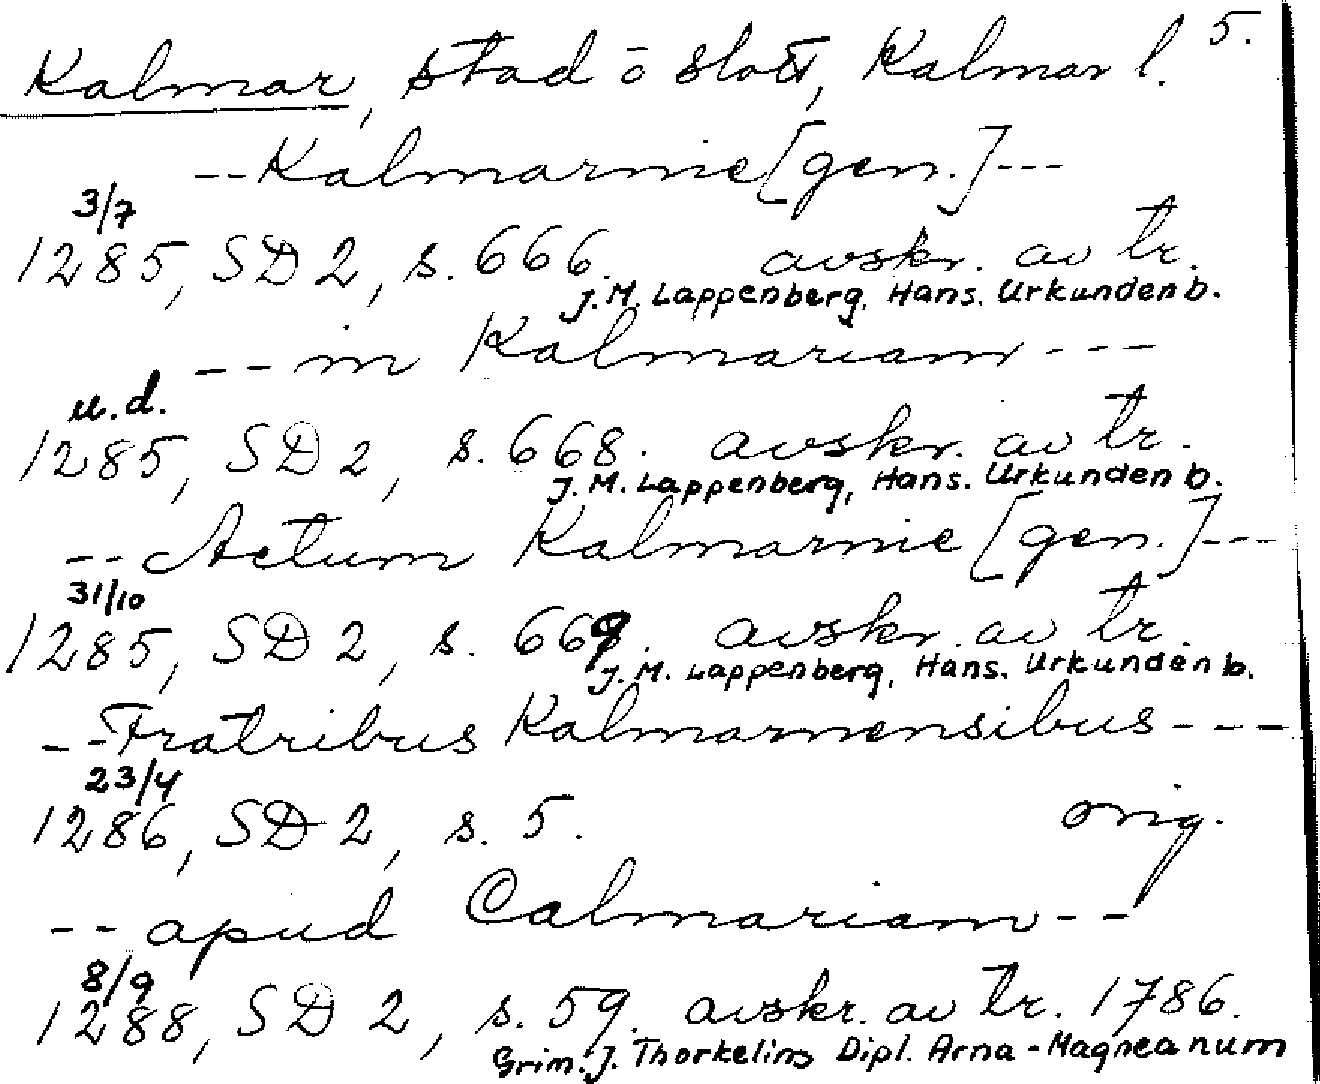 5.
Kalmar, stad o slott, Kalmar l.
--Kalmarnie [gen.]---
3/7
1285, SD 2, s. 666. avskr. av tr.
J.M. Lappenberg, Hans. Urkundenb.
--in Kalmariam---
u.d.
1285, SD 2, s. 668. avskr. av tr.
J.M. Lappenberg, Hans. Urkundenb.
--Actum Kalmarnie [gen.]---
31/10
1285, SD 2, s. 669. avskr. av tr.
J.M. Lappenberg, Hans. Urkundenb.
--Fratribus Kalmarnensibus----
23/4
1286, SD 2, s. 5. orig.
--apud Calmariam--
8/9
1288, SD 2, s. 59. avskr. av tr. 1786.
Grim. J. Thorkelins Dipl. Arna-Magneanum